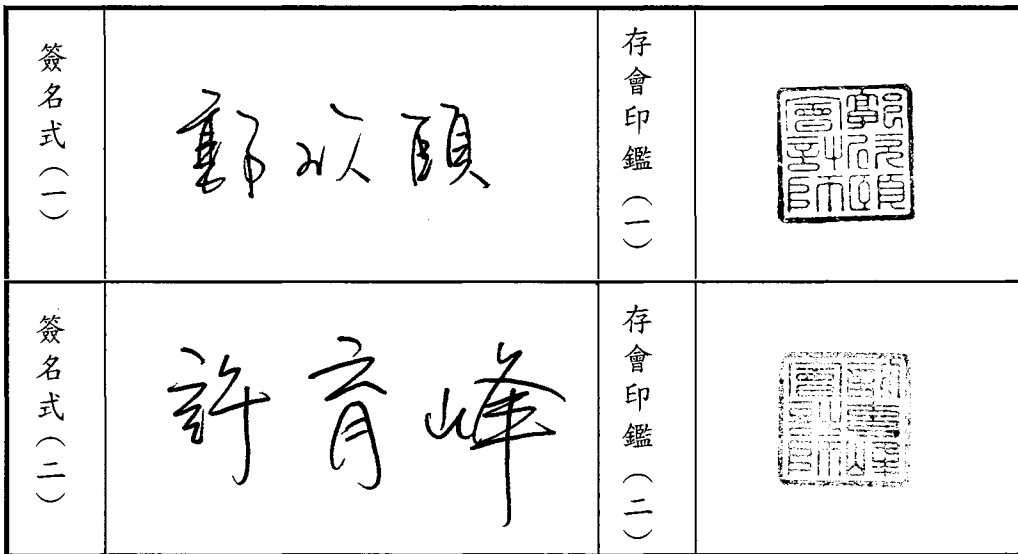 簽名式(一)
存會印鑑(一)
會計師
簽名式(二)
許育峰
存會印鑑(二)
許育峰
會計師